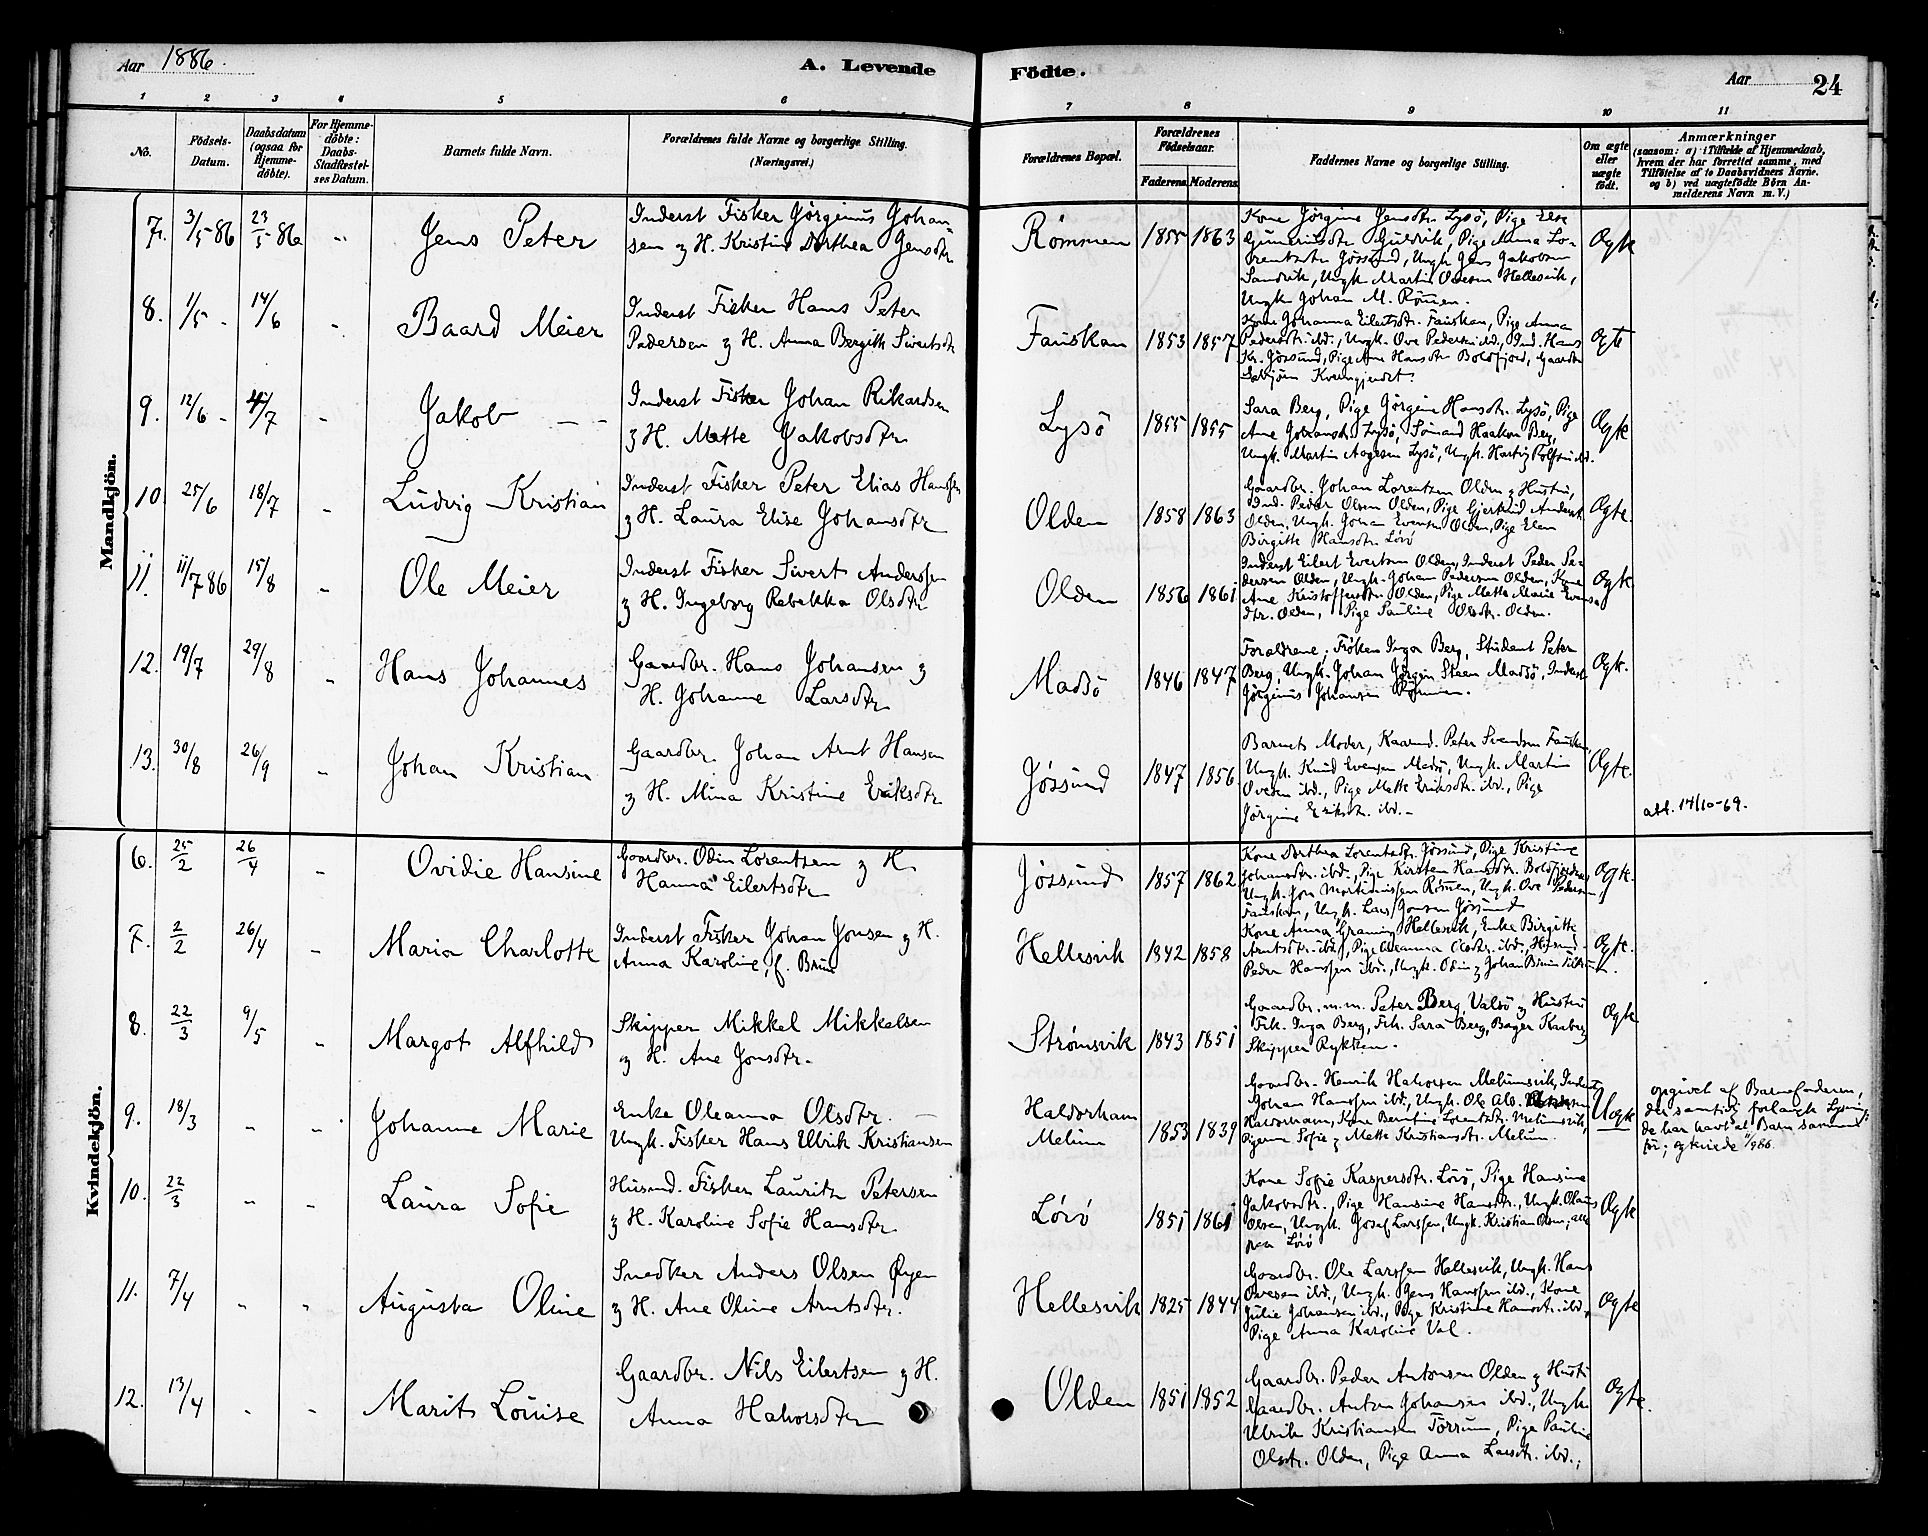 Aar 1886.
A. Levende Födte.
Aar 24
1 2 3 4 5 6 7 8 9 10 11
No.
Födsels-Datum.
Daabsdatum (ogsaa for Hjemme-döbte).
For Hjemme-döbte: Daabs-Stadfæstel-ses Datum.
Barnets fulde Navn.
Forældrenes fulde Navne og borgerlige Stilling. (Næringsvei.)
Forældrenes Bopæl.
Forældrenes Födselsaar.
Faderens. Moderens.
Faddernes Navne og borgerlige Stilling.
Om ægte eller uægte födt.
Anmærkninger
(saasom: a) i Tilfælde af Hjemmedaab, hvem der har forrettet samme, med Tilföielse af to Daabsvidners Navne. og b) ved uægtefödte Börn Anmelderens Navn m. V.)
Mandkjön.
7. 3/5-86 23/5-86 Jens Peter
Inderst Fisker Jörginus Johan-
sen & H. Kristine Dorthea Jensdtr
Rømmen 1855 1863
Kone Jörgine Jensdtr. Lysö, Pige Else
Guneriusdtr Guldvik, Pige Anna Lo-
rentsdtr Jössund, Ungk Jens Jakobsen
Sandvik, Ungk Martin Ovesen Hellesvik,
Ungk Johan M. Römen.
Ægte
8. 1/5 - 14/6 Baard Meier
Inderst Fisker Hans Peter
Pedersen & H. Anna Bergitte Sivertsdtr
Fauskan 1853 1857
Kone Johanna Eilertsdtr. Fauskan, Pige Anna
Pedersdtr. ibd., Ungk. Ove Pedersen ibd., Ind. Hans
Kr. Jössund, Pige Ane Hansdtr Boldfjord, Gaardbr
Ægte
9. 12/6 - 4/7 Jakob
Inderst Fisker Johan Rikardsen
& H. Mette Jakobsdtr
Lysö 1855 1855
Sara Berg, Pige Jörgine Hansdtr. Lysö, Pige
Ane Johansdtr Lysö, Sömand Haakon Berg,
Ungk. Martin Aagesen Lysö, Ungk. Hartvig Rolfsen ibd.
Ægte
10 25/6 18/7 Ludvig Kristian
Inderst Fisker Peter Elias Hanssen
& H. Laura Elise Johansdtr
Olden 1858 1863
Gaardbr. Johan Lorentsen Olden & Hustru,
Ind. Peder Olsen Olden, Pige Gjertrud Andersd.
Olden, Ungk. Johan Evensen Olden, Pige Elen
Birgitte Hansdtr. Lörö
Ægte.
11. 11/7 86 15/8 Ole Meier
Inderst Fisker Sivert Anderssen
& H. Ingeborg Rebekka Olsdtr
Olden 1856 1861
Inderst Eilert Evertsen Olden, Inderst Peder Pe-
dersen Olden, Ungk. Johan Pedersen Olden, Kone
Ane Kristoffersdtr Olden, Pige Mette Marie Evens-
dtr. Olden, Pige Pauline Olsdtr. Olden.
Ægte
12. 19/7 29/8 Hans Johannes
Gaardbr. Hans Johansen &
H. Johanne Larsdtr
Madsö 1846 1847
Forældrene, Fröken Inga Berg, Student Peter
Berg, Ungk. Johan Jörgen Steen Madsö, Inderst
Jörginus Johansen Römmen.
Ægte.
13. 30/8 26/9 Johan Kristian
Gaardbr. Johan Arnt Hansen
& H. Mina Kristine Eriksdtr
Jössund 1847 1856
Barnets Moder, Kaarmd. Peter Svendsen Fauskan,
Ungk. Knud Evensen Madsö, Ungk. Martin
Ovesen ibd., Pige Mette Eriksdtr. ibd., Pige
Jörgine Eriksdtr. ibd.-
Ægte.
att. 14/10-69.
Kvindekjön.
6. 25/2 26/4 Ovidie Hansine
Gaardbr. Odin Lorentsen & H
Hanna Eilertsdtr
Jössund 1857 1862
Kone Dorthea Lorentsdtr. Jössund, Pige Kristine
Johansdtr. ibd., Pige Kirsten Hansdtr. Boldfjorden,
Ungk. Jon Mortinussen Römen, Ungk. Ove Pedersen
Fauskan, Ungk. Lars Jonsen Jössund
Ægte.
7. 2/2 26/4 Maria Charlotte
Inderst Fisker Johan Jonsen & H.
Anna Karoline, f. Brun
Hellesvik 1842 1858
Kone Anna Graming Hellesvik, Enke Birgitte
Arntsdtr. ibd., Pige Oleanna Olsdtr. ibd., Husmd.
Peder Hanssen ibd., Ungk. Odin & Johan Brun
Ægte.
8. 22/3 9/5 Margot Alfhild
Skipper Mikkel Mikkelsen
& H. Ane Jonsdtr.
Strömsvik 1843 1851
Gaardbr. m.m. Peter Berg, Valsö & Hustru
Frk. Inga Berg, Frk. Sara Berg, Bager Karberg
Skipper Rykken.
Ægte
9. 18/3 Johanne Marie
Enke Oleanna Olsdtr.
Ungk. Fisker Hans Ulrik Kristiansen
Haldorhavn
Melum 1853 1839
Gaardbr. Henrik Halvorsen Melumsvik, Inderst
Johan Hanssen ibd., Ungk. Ole Alb.
Haldorhavn, Kone Berntine Lorentsdtr. Melumsvik,
Pigerne Sofie & Mette Kristiansdtr. Melum.
Uægte
opgivet af Barnefaderen,
der samtidig forlangte Lysning;
de har havt et Barn sammen
för; ægteviede 1/9 86.
10. 22/3 Laura Sofie
Husmd. Fisker Lauritz Petersen
& H. Karoline Sofie Hansdtr
Lörö 1851 1861
Kone Sofie Kaspersdtr. Lörö, Pige Hansine
Jakobsdtr., Pige Hansine Hansdtr., Ungk. Olaus
Olsen, Ungk. Josef Larssen, Ungk. Kristian Olsen, alle
paa Lörö
Ægte
11. 7/4 Augusta Oline
Snedker Anders Olsen Øyen
& H. Ane Oline Arntsdtr.
Hellesvik 1825 1844
Gaardbr. Ole Larssen Hellesvik, Ungk. Hans
Ovesen ibd., Ungk. Jens Hanssen ibd., Kone
Julie Johansen ibd., Pige Kristine Hansdtr. ibd.,
Pige Anna Karoline Val.
Ægte
12. 13/4 Marit Louise
Gaardbr. Nils Eilertsen & H.
Anna Halvorsdtr
Olden 1851 1852
Gaardbr. Peder Antonsen Olden & Hustru
Gaardbr. Anton Johansen ibd., Ungk.
Ulrik Kristiansen Torsum, Pige Pauline
Olsdtr. Olden, Pige Anna Larsdtr. ibd.,
Ægte.